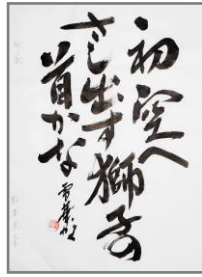 初空へ
さし出す獅子の
首かな